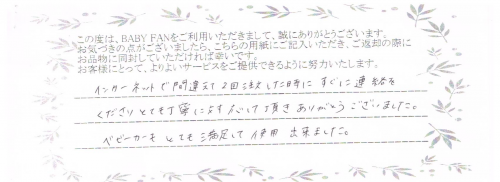 この度は、BABY FANをご利用いただきまして、誠にありがとうございます。
お気づきの点がございましたら、こちらの用紙にご記入いただき、ご返却の際に
お品物に同封していただければ幸いです。
お客様にとって、よりよいサービスをご提供できるように努力いたします。
インターネットで間違えて2回注文した時に すぐに連絡を
くださり とても丁寧に対応して頂き ありがとうございました。
ベビーカーも とても満足して使用 出来ました。